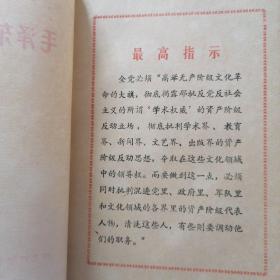 毛泽东
最高指示
全党必须“高举无产阶级文化革
命的大旗，彻底揭露那批反党反社会
主义的所谓‘学术权威’的资产阶级
反动立场，彻底批判学术界、教育
界、新闻界、文艺界、出版界的资产阶
级反动思想，夺取在这些文化领域
中的领导权。而要做到这一点，必须
同时批判混进党里、政府里、军队里
和文化领域的各界里的资产阶级代表
人物，清洗这些人，有些则要调动他
们的职务。”